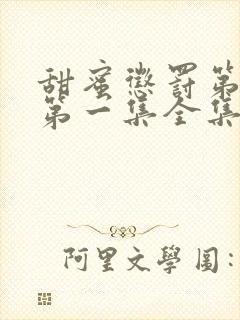 甜蜜懲罰第
第一集全集
阿里文學圖: